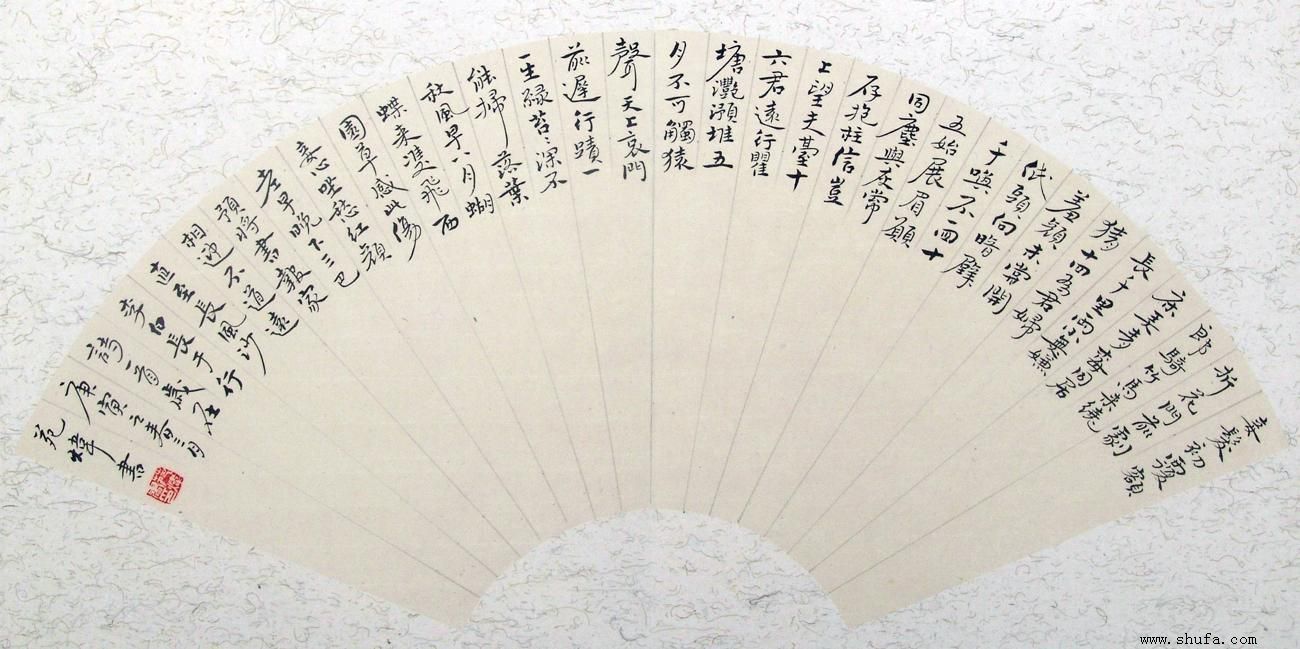 妾髮初覆額
折花門前劇
郎騎竹馬来繞
床弄青梅同居
長干里兩小無嫌
猜十四為君婦
羞顏未常開
低頭向暗壁
千喚不一回十
五始展眉願
同塵與灰常
存抱柱信豈
上望夫臺十
六君遠行瞿
塘灧澦堆五
月不可觸猿
聲天上哀門
前遲行蹟一
生綠苔〻深不
能掃落葉
秋風早八月蝴
蝶来雙飛西
園草感此傷
妾心坐愁紅顏
老早晚下三巴
預將書報家
相迎不道遠
直至長風沙
李白長干行
詩一首歲在
庚寅之春三月
苑煒書
www.shufa.com